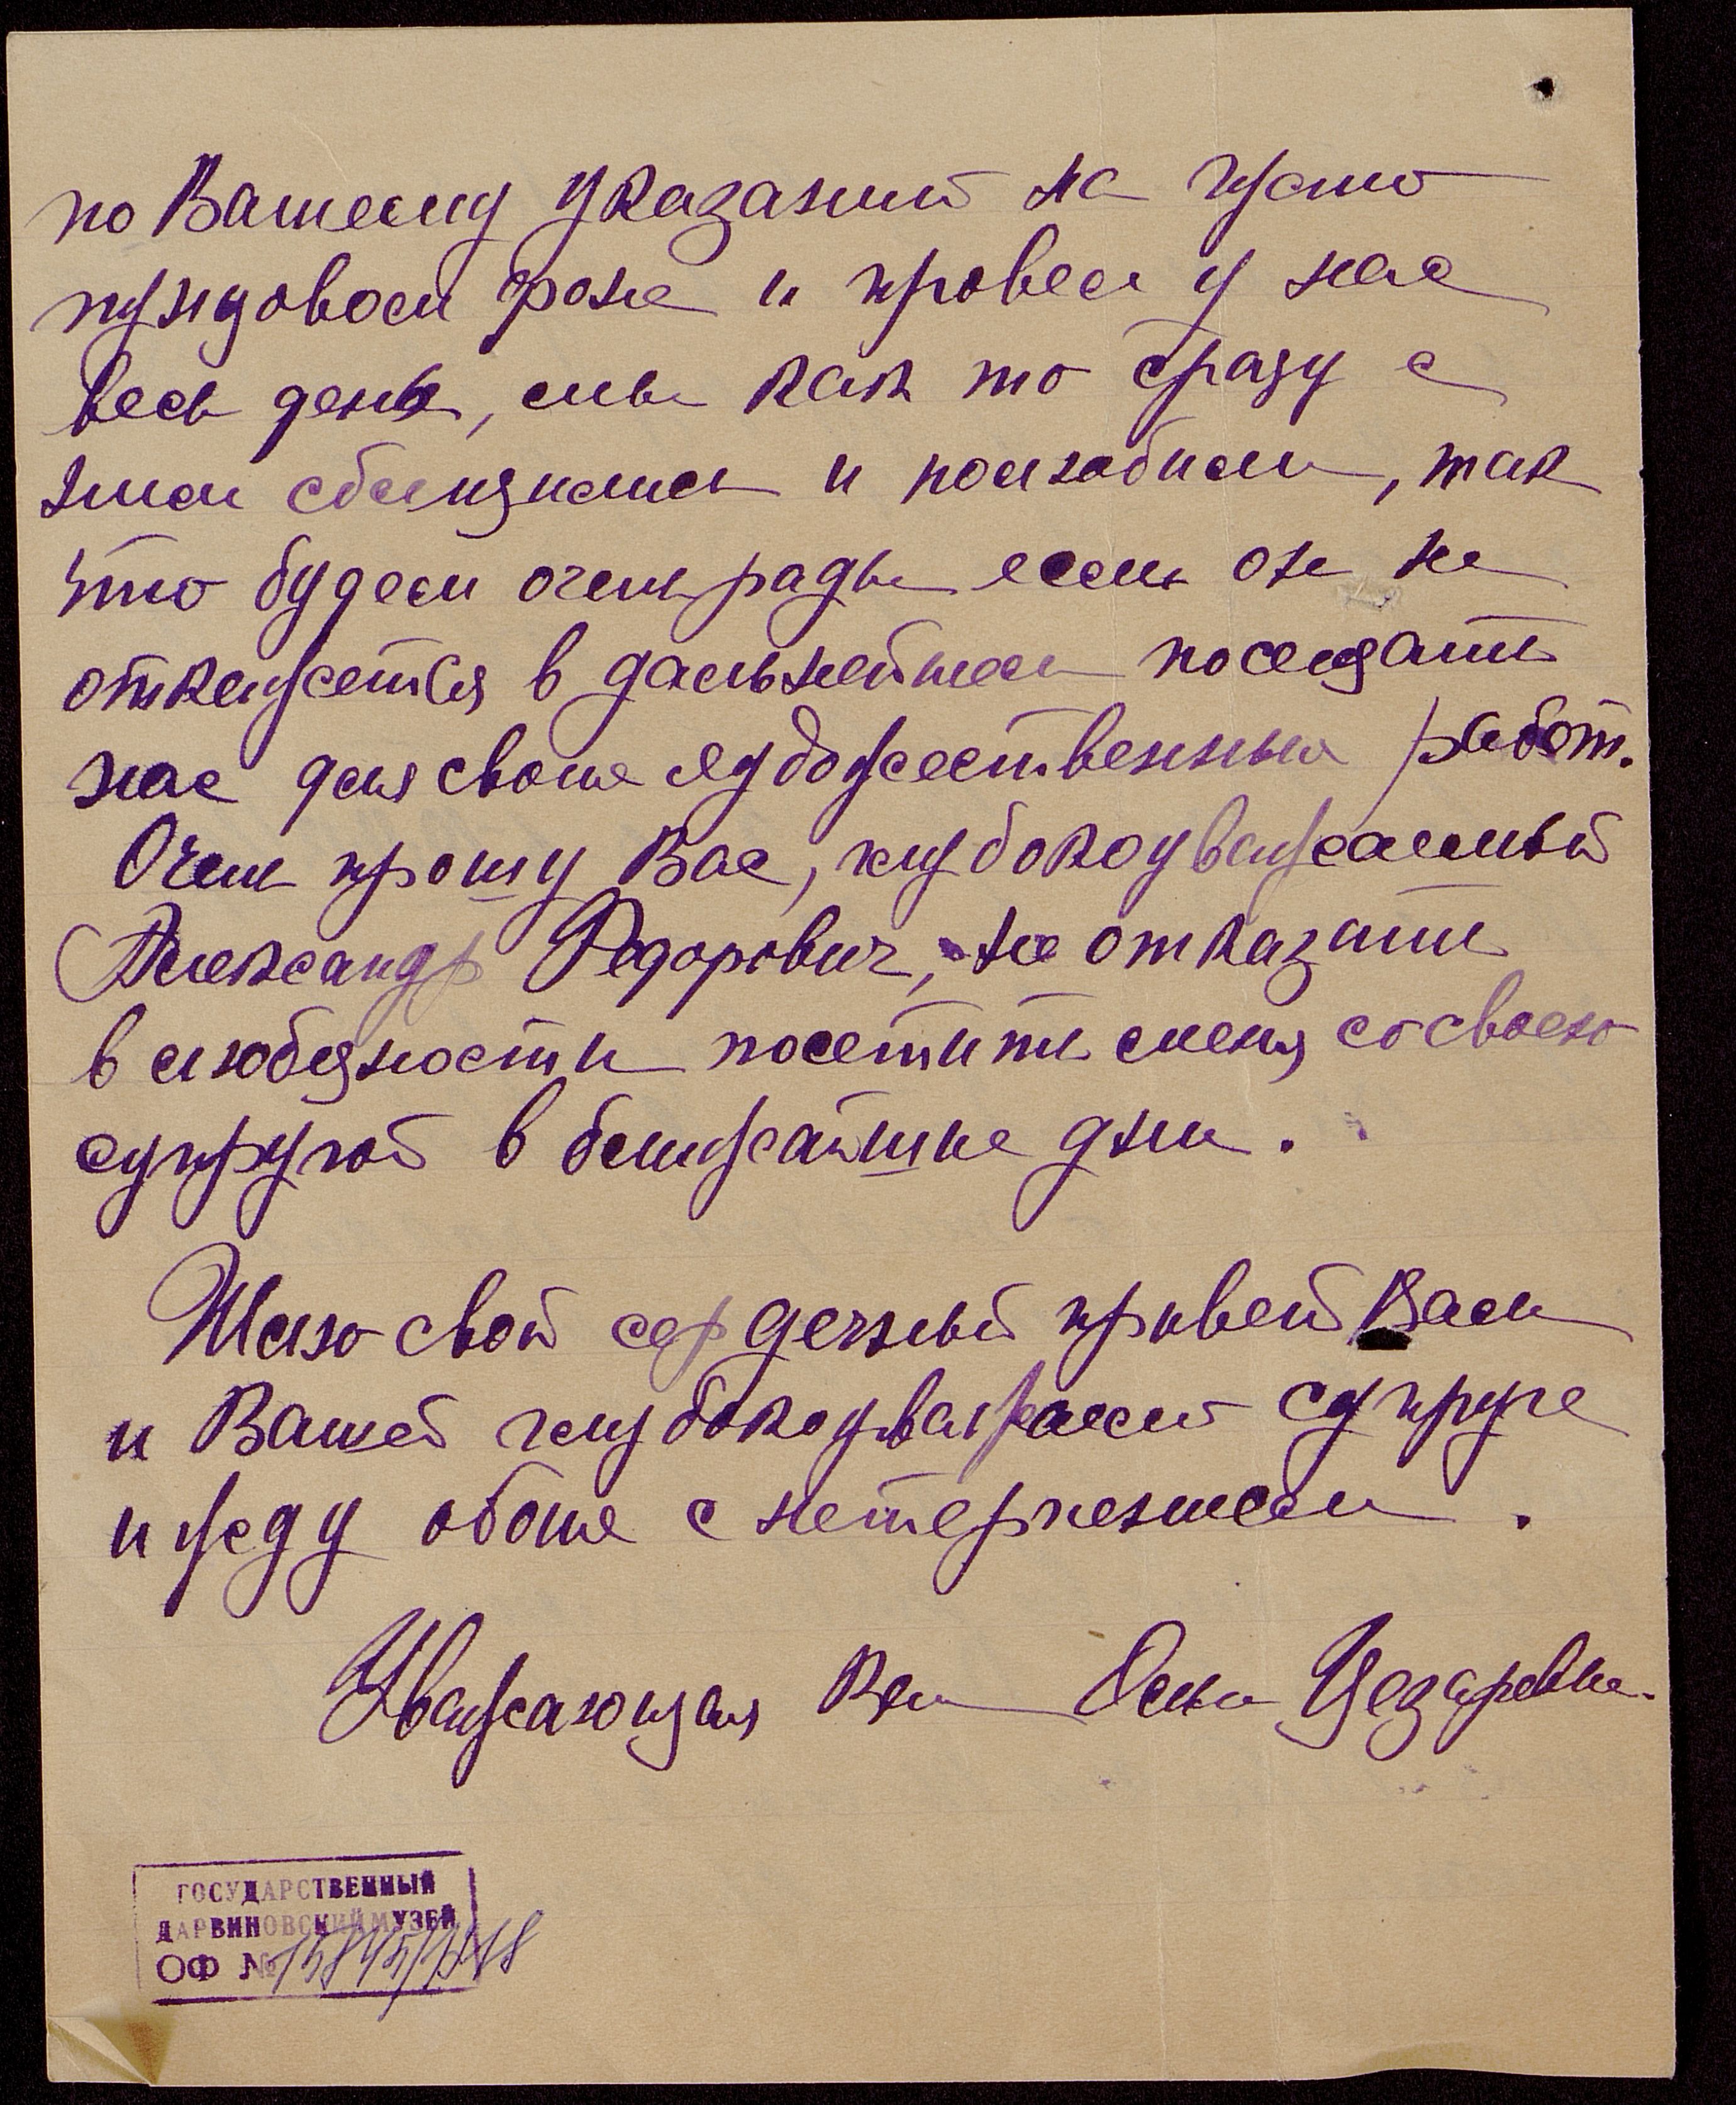 по Вашему указаний на густо
пурпуровом фоне и провел у нас
весь день, мы как то сразу с
ним сблизились и полюбили, так
что будем очень рады если он не
откажется в дальнейшем посещать
нас для своих художественных работ.
Очень прошу Вас, глубокоуважаемый
Александр Федорович, не отказать
в любезности посетить меня со своею
супругой в ближайшие дни.
Шлю свой сердечный привет Вам
и Вашей глубокоуважаемой супруге
и жду обоих с нетерпением.
Уважающая Вас Цезаревна.
ГОСУДАРСТВЕННЫЙ
ДАРВИНОВСКИЙ МУЗЕЙ
ОФ №